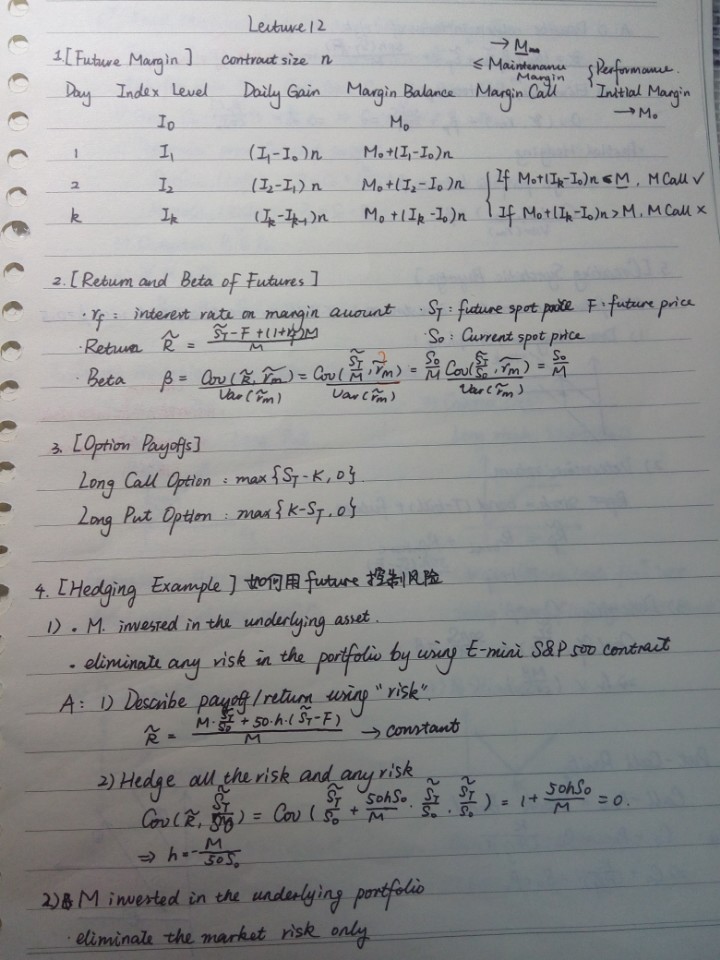 Lecture 12
1. [Future Margin] contract size n → M
Day Index Level Daily Gain Margin Balance ≤ Maintenance Margin Margin Call { Performance. Initial Margin → M₀
I₀ M₀
1 I₁ (I₁-I₀)n M₀+(I₁-I₀)n
2 I₂ (I₂-I₁)n M₀+(I₂-I₀)n { If M₀+(Iₖ-I₀)n ≤ M, M Call √
k Iₖ (Iₖ-Iₖ₋₁)n M₀+(Iₖ-I₀)n If M₀+(Iₖ-I₀)n > M, M Call ×
2. [Return and Beta of Futures]
· r_f : interest rate on margin amount · S_T : future spot price F : future price
· Return R̃ = (S̃_T - F + (1+r_f)M) / M · S₀ : Current spot price
· Beta β = Cov(R̃, r̃m) / Var(r̃m) = Cov(S̃_T/M, r̃m) / Var(r̃m) = S₀/M Cov(S̃_T/S₀, r̃m) / Var(r̃m) = S₀/M
3. [Option Payoffs]
Long Call Option : max{S_T - K, 0}.
Long Put Option : max{K - S_T, 0}
4. [Hedging Example] 如何用future 控制风险
1) · M. invested in the underlying asset.
· eliminate any risk in the portfolio by using E-mini S&P 500 contract
A: 1) Describe payoff/return using "risk".
R̃ = (M · S̃_T/S₀ + 50·h·(S̃_T - F)) / M → constant
2) Hedge all the risk and any risk
Cov(R̃, S̃_T/S₀) = Cov(S̃_T/S₀ + 50hS₀/M · S̃_T/S₀, S̃_T/S₀) = 1 + 50hS₀/M = 0.
⇒ h = - M/50S₀
2) M invested in the underlying portfolio
· eliminate the market risk only